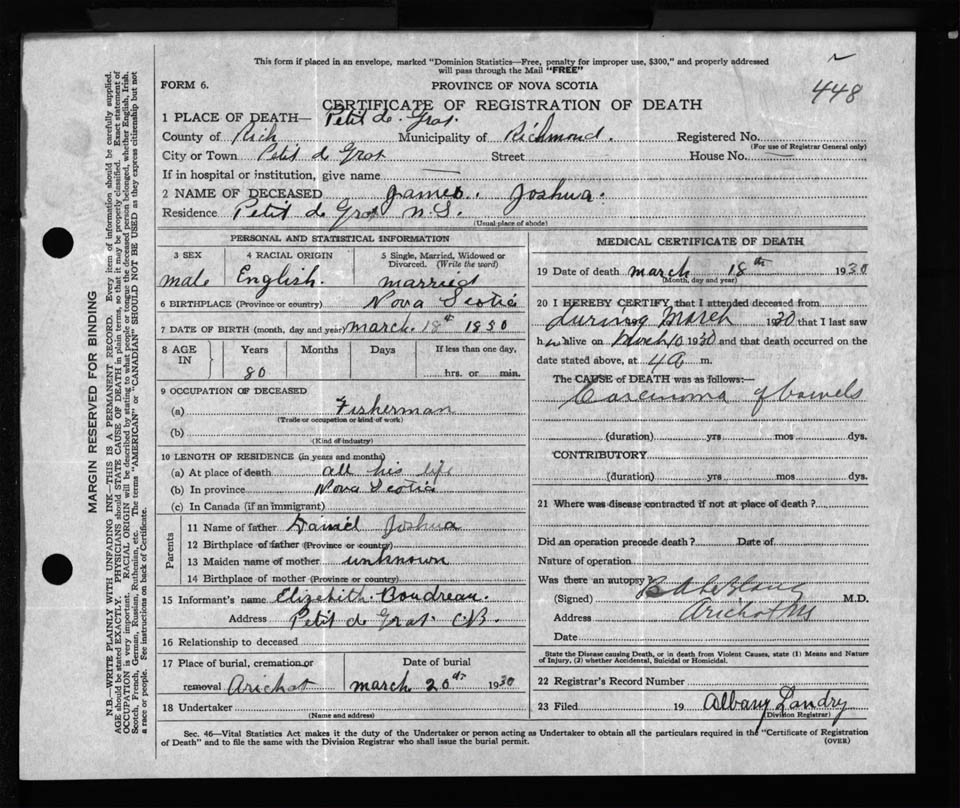 This form if placed in an envelope, marked "Dominion Statistics—Free, penalty for improper use, $300," and properly addressed
will pass through the Mail "FREE"
FORM 6.
PROVINCE OF NOVA SCOTIA
448
CERTIFICATE OF REGISTRATION OF DEATH
1 PLACE OF DEATH— Petit de Grat.
County of Rich Municipality of Richmond. Registered No.
(For use of Registrar General only)
City or Town Petit d Grat Street House No. —
If in hospital or institution, give name —
2 NAME OF DECEASED James. Joshua.
Residence Petit de Grat N.S.
(Usual place of abode)
PERSONAL AND STATISTICAL INFORMATION
3 SEX 4 RACIAL ORIGIN 5 Single, Married, Widowed or
Divorced. (Write the word)
male English. married
6 BIRTHPLACE (Province or country) Nova Scotia
7 DATE OF BIRTH (month, day and year) march. 18th 1850
8 AGE IN Years Months Days If less than one day,
80 hrs. or min.
9 OCCUPATION OF DECEASED
(a) Fisherman
(Trade or occupation or kind of work)
(b)
(Kind of industry)
10 LENGTH OF RESIDENCE (in years and months)
(a) At place of death all his life
(b) In province Nova Scotia
(c) In Canada (if an immigrant)
Parents
11 Name of father Daniel Joshua
12 Birthplace of father (Province or country)
13 Maiden name of mother unknown
14 Birthplace of mother (Province or country)
15 Informant's name Elizebith Boudreau.
Address Petit de Grat. C.B.
16 Relationship to deceased
17 Place of burial, cremation or Date of burial
removal Arichat march 20th 1930
18 Undertaker
(Name and address)
MEDICAL CERTIFICATE OF DEATH
19 Date of death march 18th 1930
(Month, day and year)
20 I HEREBY CERTIFY that I attended deceased from
during March 1930 that I last saw
him alive on March 10 1930 and that death occurred on the
date stated above, at 4 a m.
The CAUSE of DEATH was as follows:—
Carcinoma of bowels
(duration) yrs mos dys.
CONTRIBUTORY
(duration) yrs mos dys.
21 Where was disease contracted if not at place of death?
Did an operation precede death? Date of
Nature of operation
Was there an autopsy
(Signed) M.D.
Address Arichat NS
Date
State the Disease causing Death, or in death from Violent Causes, state (1) Means and Nature
of Injury, (2) whether Accidental, Suicidal or Homicidal.
22 Registrar's Record Number
23 Filed 19 Albany Landry
(Division Registrar)
Sec. 46—Vital Statistics Act makes it the duty of the Undertaker or person acting as Undertaker to obtain all the particulars required in the "Certificate of Registration
of Death" and to file the same with the Division Registrar who shall issue the burial permit. (OVER)
MARGIN RESERVED FOR BINDING
N.B.—WRITE PLAINLY WITH UNFADING INK—THIS IS A PERMANENT RECORD. Every item of information should be carefully supplied.
AGE should be stated EXACTLY. PHYSICIANS should STATE CAUSE OF DEATH in plain terms, so that it may be properly classified. Exact statement of
OCCUPATION is very important. RACIAL ORIGIN will be described by stating to what people or tongue the deceased person belonged, whether English, Irish,
Scotch, French, German, Russian, Ruthenian, etc. The terms "AMERICAN" or "CANADIAN" SHOULD NOT BE USED as they express citizenship but not
a race or people. See instructions on back of Certificate.